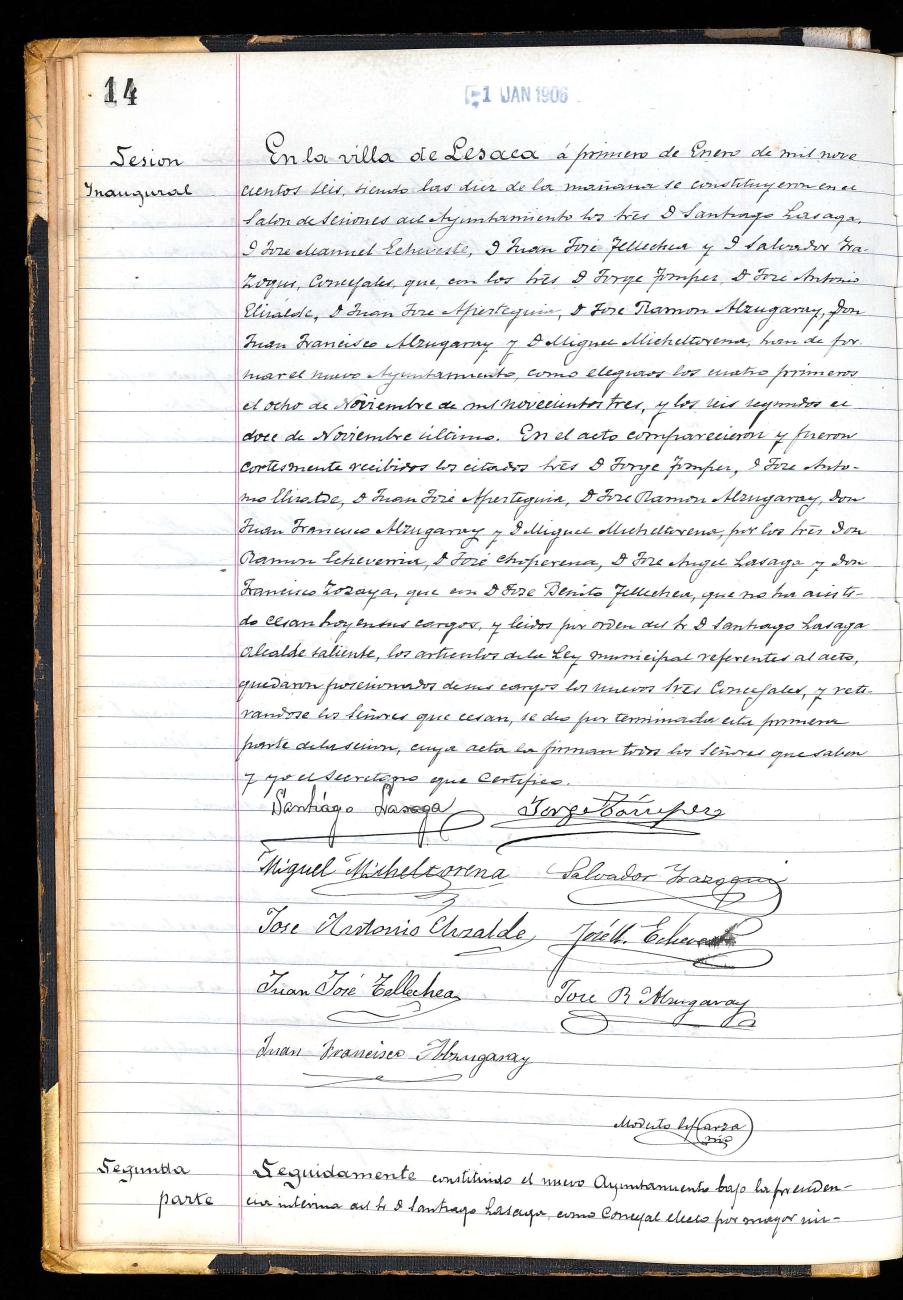 14
1 JAN 1906
Sesion
Inaugural
En la villa de Lesaca á primero de Enero de mil nove
cientos seis, siendo las diez de la mañana se constituyeron en el
Salon de Sesiones del Ayuntamiento los Sres D Santiago Lasaga,
D Jose Manuel Echeveste, D Juan José Tellechea y D Salvador Ira-
zoqui, Concejales, que, con los Sres D Jorge Tomper, D Jose Antonio
Elizalde, D Juan Jose Aperteguia, D Jose Ramon Alzugaray, Don
Juan Francisco Alzugaray y D Miguel Micheltorena, han de for
mar el nuevo Ayuntamiento, como elegidos los cuatro primeros
el ocho de Noviembre de mil novecientos tres, y los seis segundos el
doce de Noviembre último. En el acto comparecieron y fueron
cortesmente recibidos los citados Sres D Jorge Tomper, D Jose Anto-
nio Elizalde, D Juan José Aperteguia, D Jose Ramon Alzugaray, Don
Juan Francisco Alzugaray y D Miguel Micheltorena, por los Sres Don
Ramon Echeverria, D José Choperena, D Jose Angel Lasaga y Don
Francisco Zozaya, que con D Jose Benito Tellechea, que no ha asisti-
do cesan hoy en sus cargos, y leidos por orden del Sr D Santiago Lasaga
Alcalde saliente, los articulos de la Ley municipal referentes al acto,
quedaron posesionados de sus cargos los nuevos Sres Concejales, y reti-
randose los Señores que cesan, se dio por terminada esta primera
parte de la sesion, cuya acta la firman todos los Señores que saben
y yo el Secretario que Certifico.
Santiago Lasaga Jorge Tómper
Miguel Micheltorena Salvador Irazoqui
Jose Antonio Elizalde José M. Echeveste
Juan José Tellechea Jose R Alzugaray
Juan Francisco Alzugaray
Modesto
Segunda
parte
Seguidamente constituido el nuevo Ayuntamiento bajo la presiden-
cia interina del Sr D Santiago Lasaga, como Concejal electo por mayor nú-